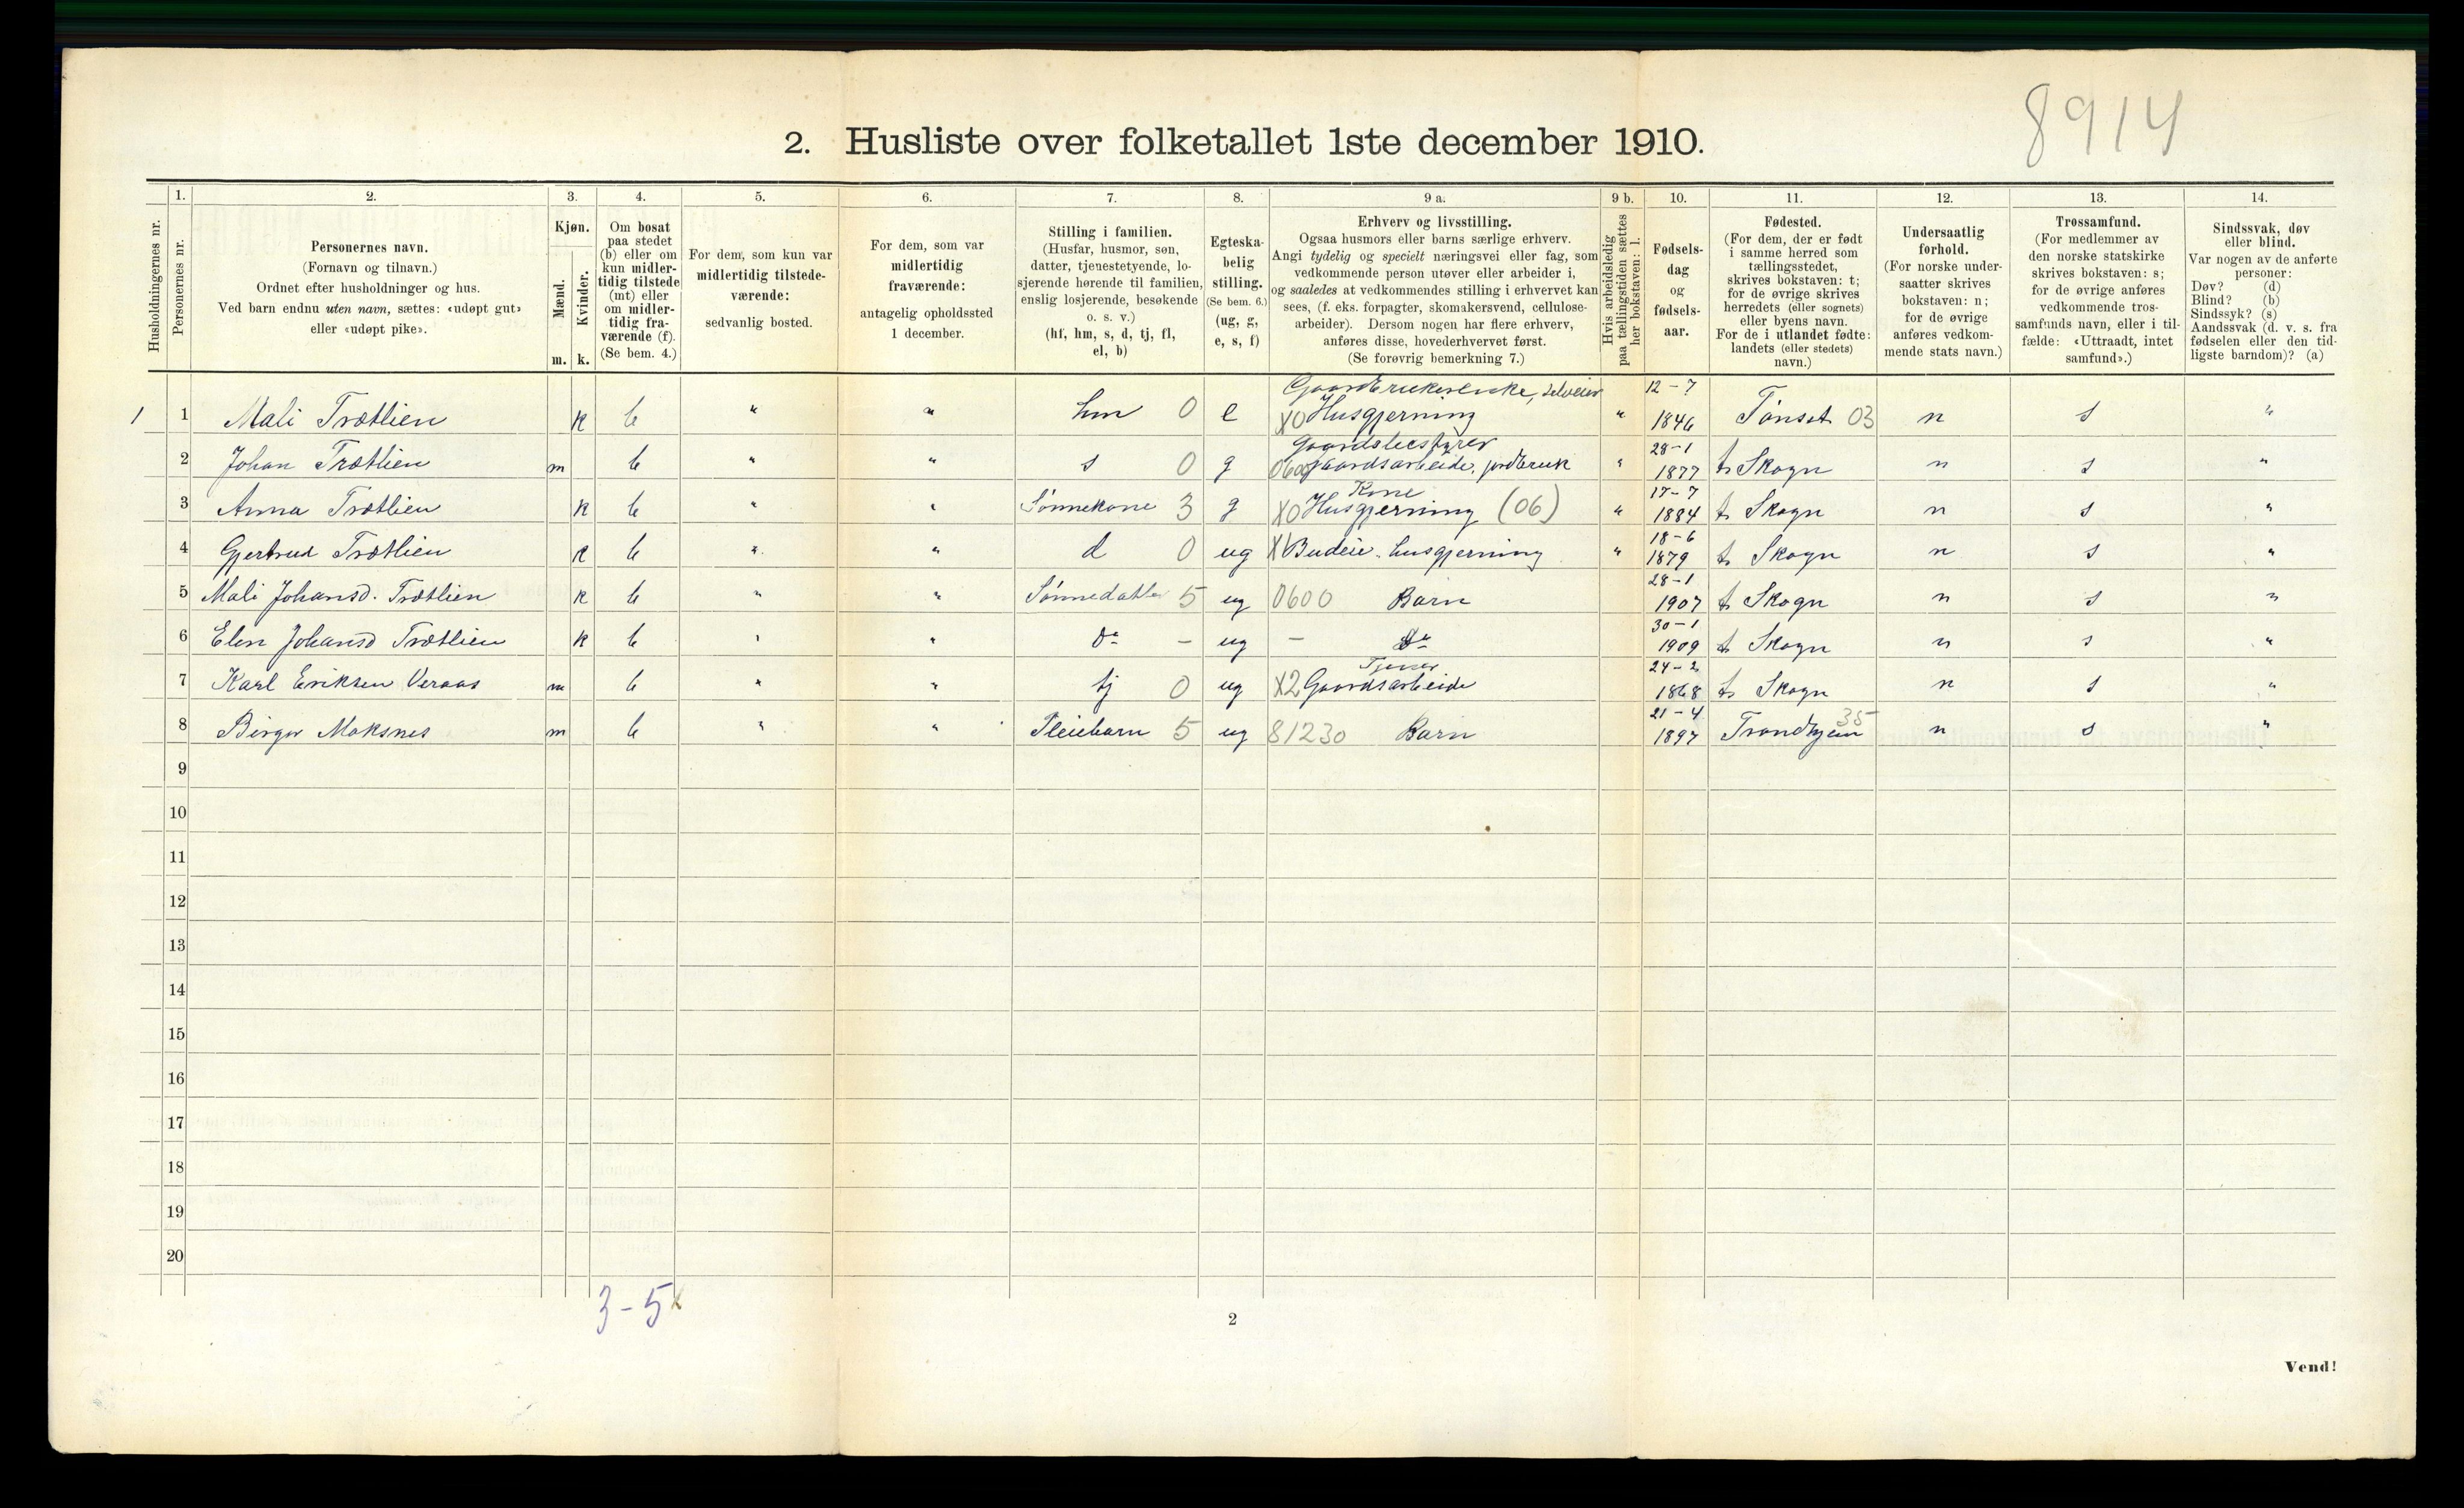 8914
2. Husliste over folketallet 1ste december 1910.
Husholdningernes nr.
1.
Personernes nr.
2.
Personernes navn.
(Fornavn og tilnavn.)
Ordnet efter husholdninger og hus.
Ved barn endnu uten navn, sættes: «udøpt gut»
eller «udøpt pike».
3.
Kjøn.
Mænd.
Kvinder.
m. k.
4.
Om bosat
paa stedet
(b) eller om
kun midler-
tidig tilstede
(mt) eller
om midler-
tidig fra-
værende (f).
(Se bem. 4.)
5.
For dem, som kun var
midlertidig tilstede-
værende:
sedvanlig bosted.
6.
For dem, som var
midlertidig
fraværende:
antagelig opholdssted
1 december.
7.
Stilling i familien.
(Husfar, husmor, søn,
datter, tjenestetyende, lo-
sjerende hørende til familien,
enslig losjerende, besøkende
o. s. v.)
(hf, hm, s, d, tj, fl,
el, b)
8.
Egteska-
belig
stilling.
(Se bem. 6.)
(ug, g,
e, s, f)
9 a.
Erhverv og livsstilling.
Ogsaa husmors eller barns særlige erhverv.
Angi tydelig og specielt næringsvei eller fag, som
vedkommende person utøver eller arbeider i,
og saaledes at vedkommendes stilling i erhvervet kan
sees, (f. eks. forpagter, skomakersvend, cellulose-
arbeider). Dersom nogen har flere erhverv,
anføres disse, hovederhvervet først.
(Se forøvrig bemerkning 7.)
9 b.
Hvis arbeidsledig
paa tællingstiden sættes
her bokstaven: l.
10.
Fødsels-
dag
og
fødsels-
aar.
11.
Fødested.
(For dem, der er født
i samme herred som
tællingsstedet,
skrives bokstaven: t;
for de øvrige skrives
herredets (eller sognets)
eller byens navn.
For de i utlandet fødte:
landets (eller stedets)
navn.)
12.
Undersaatlig
forhold.
(For norske under-
saatter skrives
bokstaven: n;
for de øvrige
anføres vedkom-
mende stats navn.)
13.
Trossamfund.
(For medlemmer av
den norske statskirke
skrives bokstaven: s;
for de øvrige anføres
vedkommende tros-
samfunds navn, eller i til-
fælde: «Uttraadt, intet
samfund».)
14.
Sindssvak, døv
eller blind.
Var nogen av de anførte
personer:
Døv? (d)
Blind? (b)
Sindssyk? (s)
Aandssvak (d. v. s. fra
fødselen eller den tid-
ligste barndom)? (a)
Gaardbrukerenke, selveier 12-7
1 1 Mali Trætlien k b " " hm 0 e X0 Husgjerning " 1846 Tønset 03 n s "
Gaardsbestyrer 28-1
2 Johan Trætlien m b " " s 0 g 0600 gaardsarbeide, jordbruk " 1877 t. Skogn n s "
Kone 17-7
3 Anna Trætlien k b " " Sønnekone 3 g X0 Husgjerning (06) " 1884 t. Skogn n s "
18-6
4 Gjertrud Trætlien k b " " d 0 ug X1 Budeie. husgjerning " 1879 t. Skogn n s "
28-1
5 Mali Johansd. Trætlien k b " " Sønnedatter 5 ug 0600 Barn 1907 t. Skogn n s "
30-1
6 Elen Johansd Trætlien k b " " do - ug - do 1909 t Skogn n s "
Tjener 24-2
7 Karl Eriksen Veraas m b " " tj 0 ug X2 Gaardsarbeide 1868 t. Skogn n s "
21-4 35
8 Birger Moksnes m b " " Pleiebarn 5 ug 81230 Barn 1897 Trondhjem n s "
9
10
11
12
13
14
15
16
17
18
19
20
3-5
2
Vend!